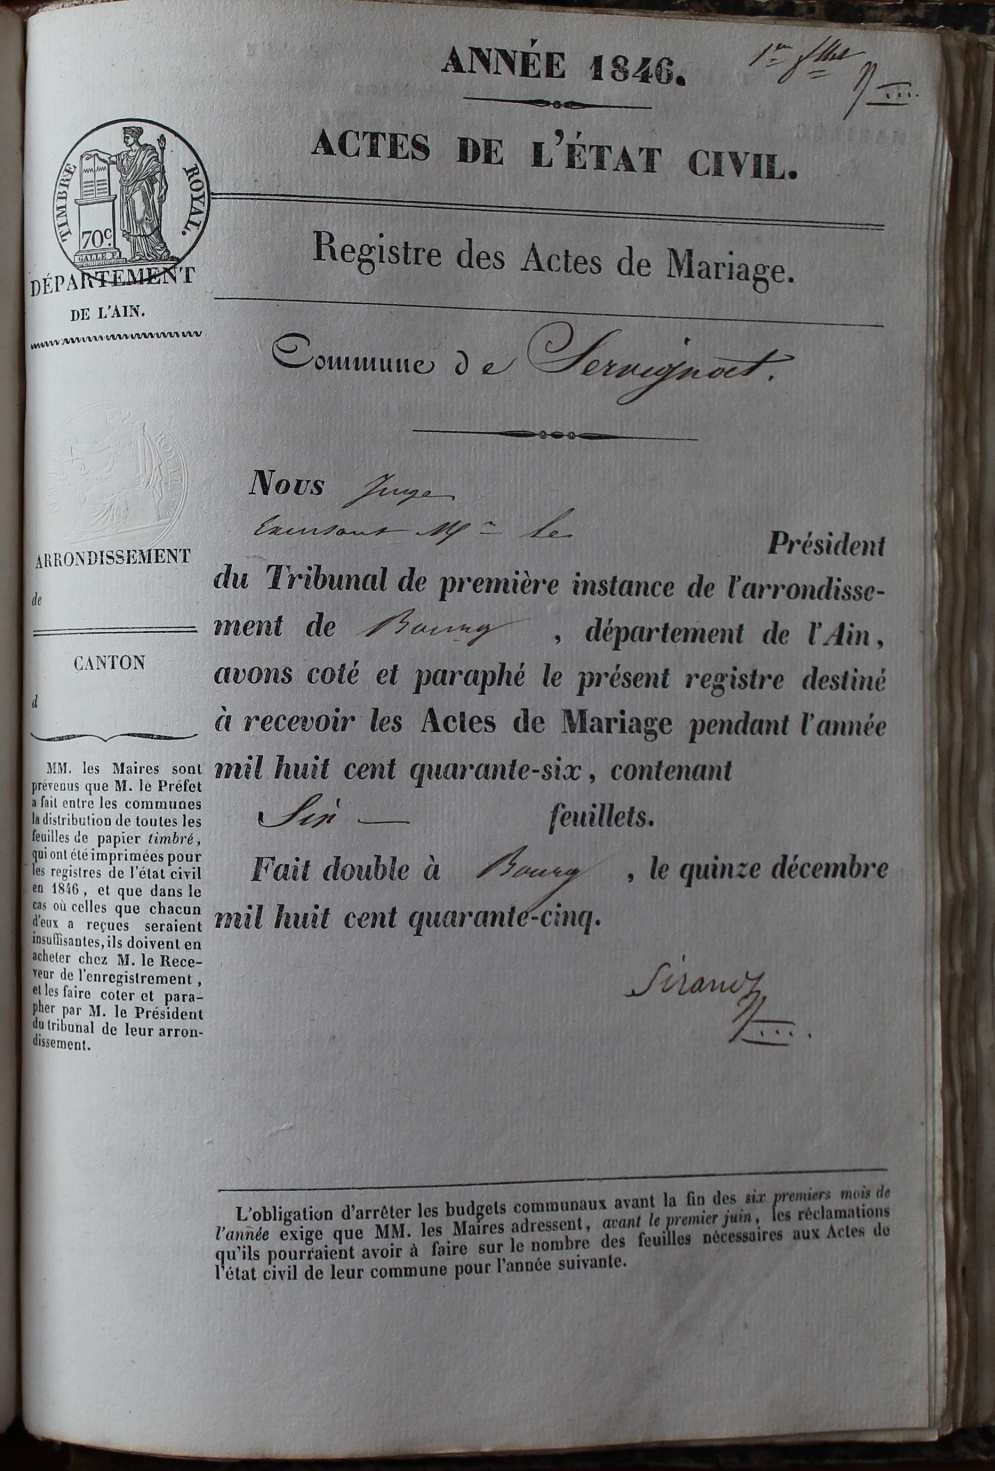 ANNÉE 1846.
1er
ACTES DE L'ÉTAT CIVIL.
TIMBRE ROYAL.
70c
DÉPARTEMENT
DE L'AIN.
Registre des Actes de Mariage.
Commune de Servignat.
Nous Juge
Mr le Président
du Tribunal de première instance de l'arrondisse-
ment de Bourg, département de l'Ain,
avons coté et paraphé le présent registre destiné
à recevoir les Actes de Mariage pendant l'année
mil huit cent quarante-six, contenant
Six feuillets.
Fait double à Bourg, le quinze décembre
mil huit cent quarante-cinq.
Sirand
ARRONDISSEMENT
de
CANTON
d
MM. les Maires sont
prévenus que M. le Préfet
a fait entre les communes
la distribution de toutes les
feuilles de papier timbré,
qui ont été imprimées pour
les registres de l'état civil
en 1846, et que dans le
cas où celles que chacun
d'eux a reçues seraient
insuffisantes, ils doivent en
acheter chez M. le Rece-
veur de l'enregistrement,
et les faire coter et para-
pher par M. le Président
du tribunal de leur arron-
dissement.
L'obligation d'arrêter les budgets communaux avant la fin des six premiers mois de
l'année exige que MM. les Maires adressent, avant le premier juin, les réclamations
qu'ils pourraient avoir à faire sur le nombre des feuilles nécessaires aux Actes de
l'état civil de leur commune pour l'année suivante.